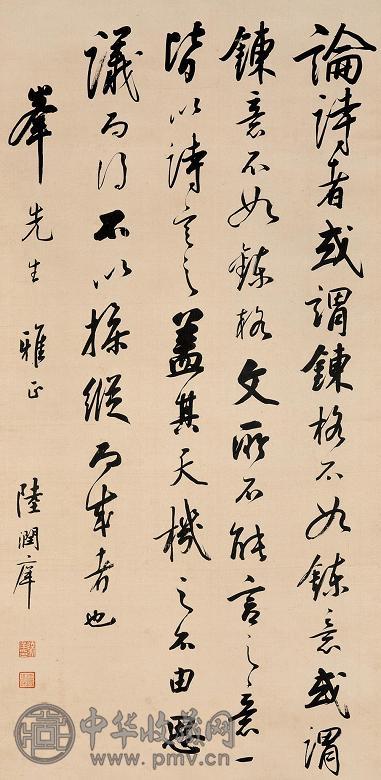 論詩者或謂鍊格不如鍊意或謂
鍊意不如鍊格文所不能言之意一
皆以詩言之蓋其天機之不由思
議而得不以操縱而成者也
峯先生雅正
陸潤庠
中华收藏网
www.pmv.cn